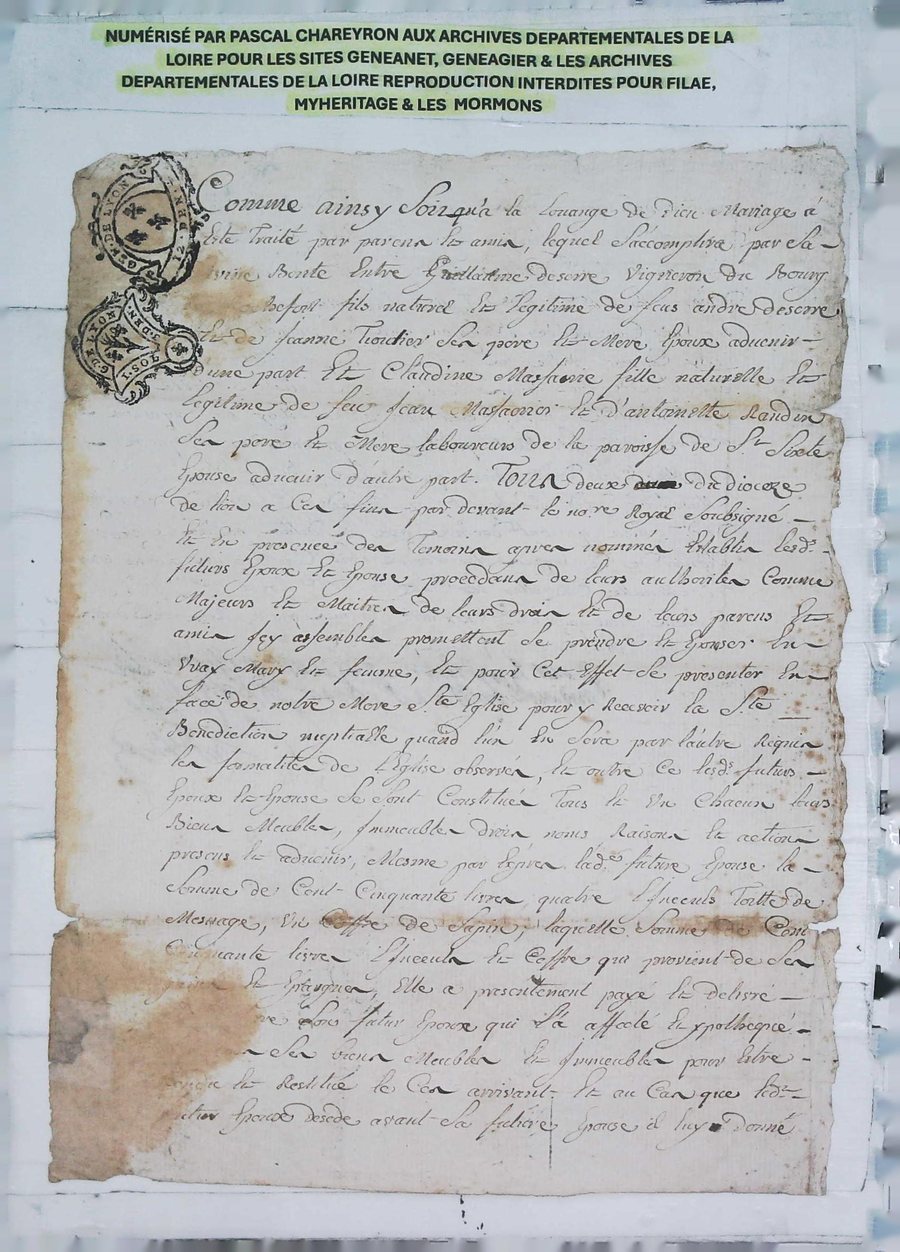 NUMÉRISÉ PAR PASCAL CHAREYRON AUX ARCHIVES DEPARTEMENTALES DE LA
LOIRE POUR LES SITES GENEANET, GENEAGIER & LES ARCHIVES
DEPARTEMENTALES DE LA LOIRE REPRODUCTION INTERDITES POUR FILAE,
MYHERITAGE & LES MORMONS
GEN. DE LYON
G. DE LYON
Comme ainsy Soit qu'a la Louange de Dieu Mariage à
Esté Traité par parens Et amis, lequel S'accomplira par Sa
Divine Bonté Entre Guillaume deserre Vigneron du Bourg
fils naturel Et Legitime de feus andré deserre
Et de Jeanne Tiordier Ses pere Et Mere Epoux advenir
D'une part Et Claudine Massacrie fille naturelle Et
Legitime de feu Jean Massacrier Et D'antoinette Randin
Ses pere Et Mere laboureurs de la paroisse de St. Sixte
Epouse advenir d'autre part. Tous deux du dioceze
de lion a Ces fins par devant le no.re Royal Soubsigné
Et En presence des Temoins apres nommés Etablis lesds.
futurs Epoux Et Epouse procedans de leurs authorités Comme
Majeurs Et Maitres de leurs droits Et de leurs parens Et
amis Jcy assembles promettent Se prendre Et Epouser En
Vray Mary Et femme, Et pour Cet Effet Se presenter En
face de notre Mere Ste Eglise pour y Recevoir la Ste
Benediction nuptialle quand l'un En Sera par l'autre Requis
les formalités de L'Eglise observées, Et outre Ce lesds. futurs
Epoux Et Epouse Se Sont Constitués Tous Et Un Chacun leurs
Biens Meubles, Jmmeubles droits noms Raisons Et actions
presens Et advenir, Mesme par Expres lade. future Epouse la
Somme de Cent Cinquante livres quatre Linceuls Toille de
Mesnage, Un Coffre de Sapin, laquelle Somme de Cent
Cinquante livres Linceuls Et Coffre qui provient de Ses
Et Epargnes, Elle a presentement payé Et delivré
Son futur Epoux qui L'a affecté Et ypothequé
Ses biens Meubles Et Jmmeubles pour Estre
Et Restitué le Cas arrivant Et au Cas que ledt.
futur Epoux decede avant Sa future Epouse il luy donné